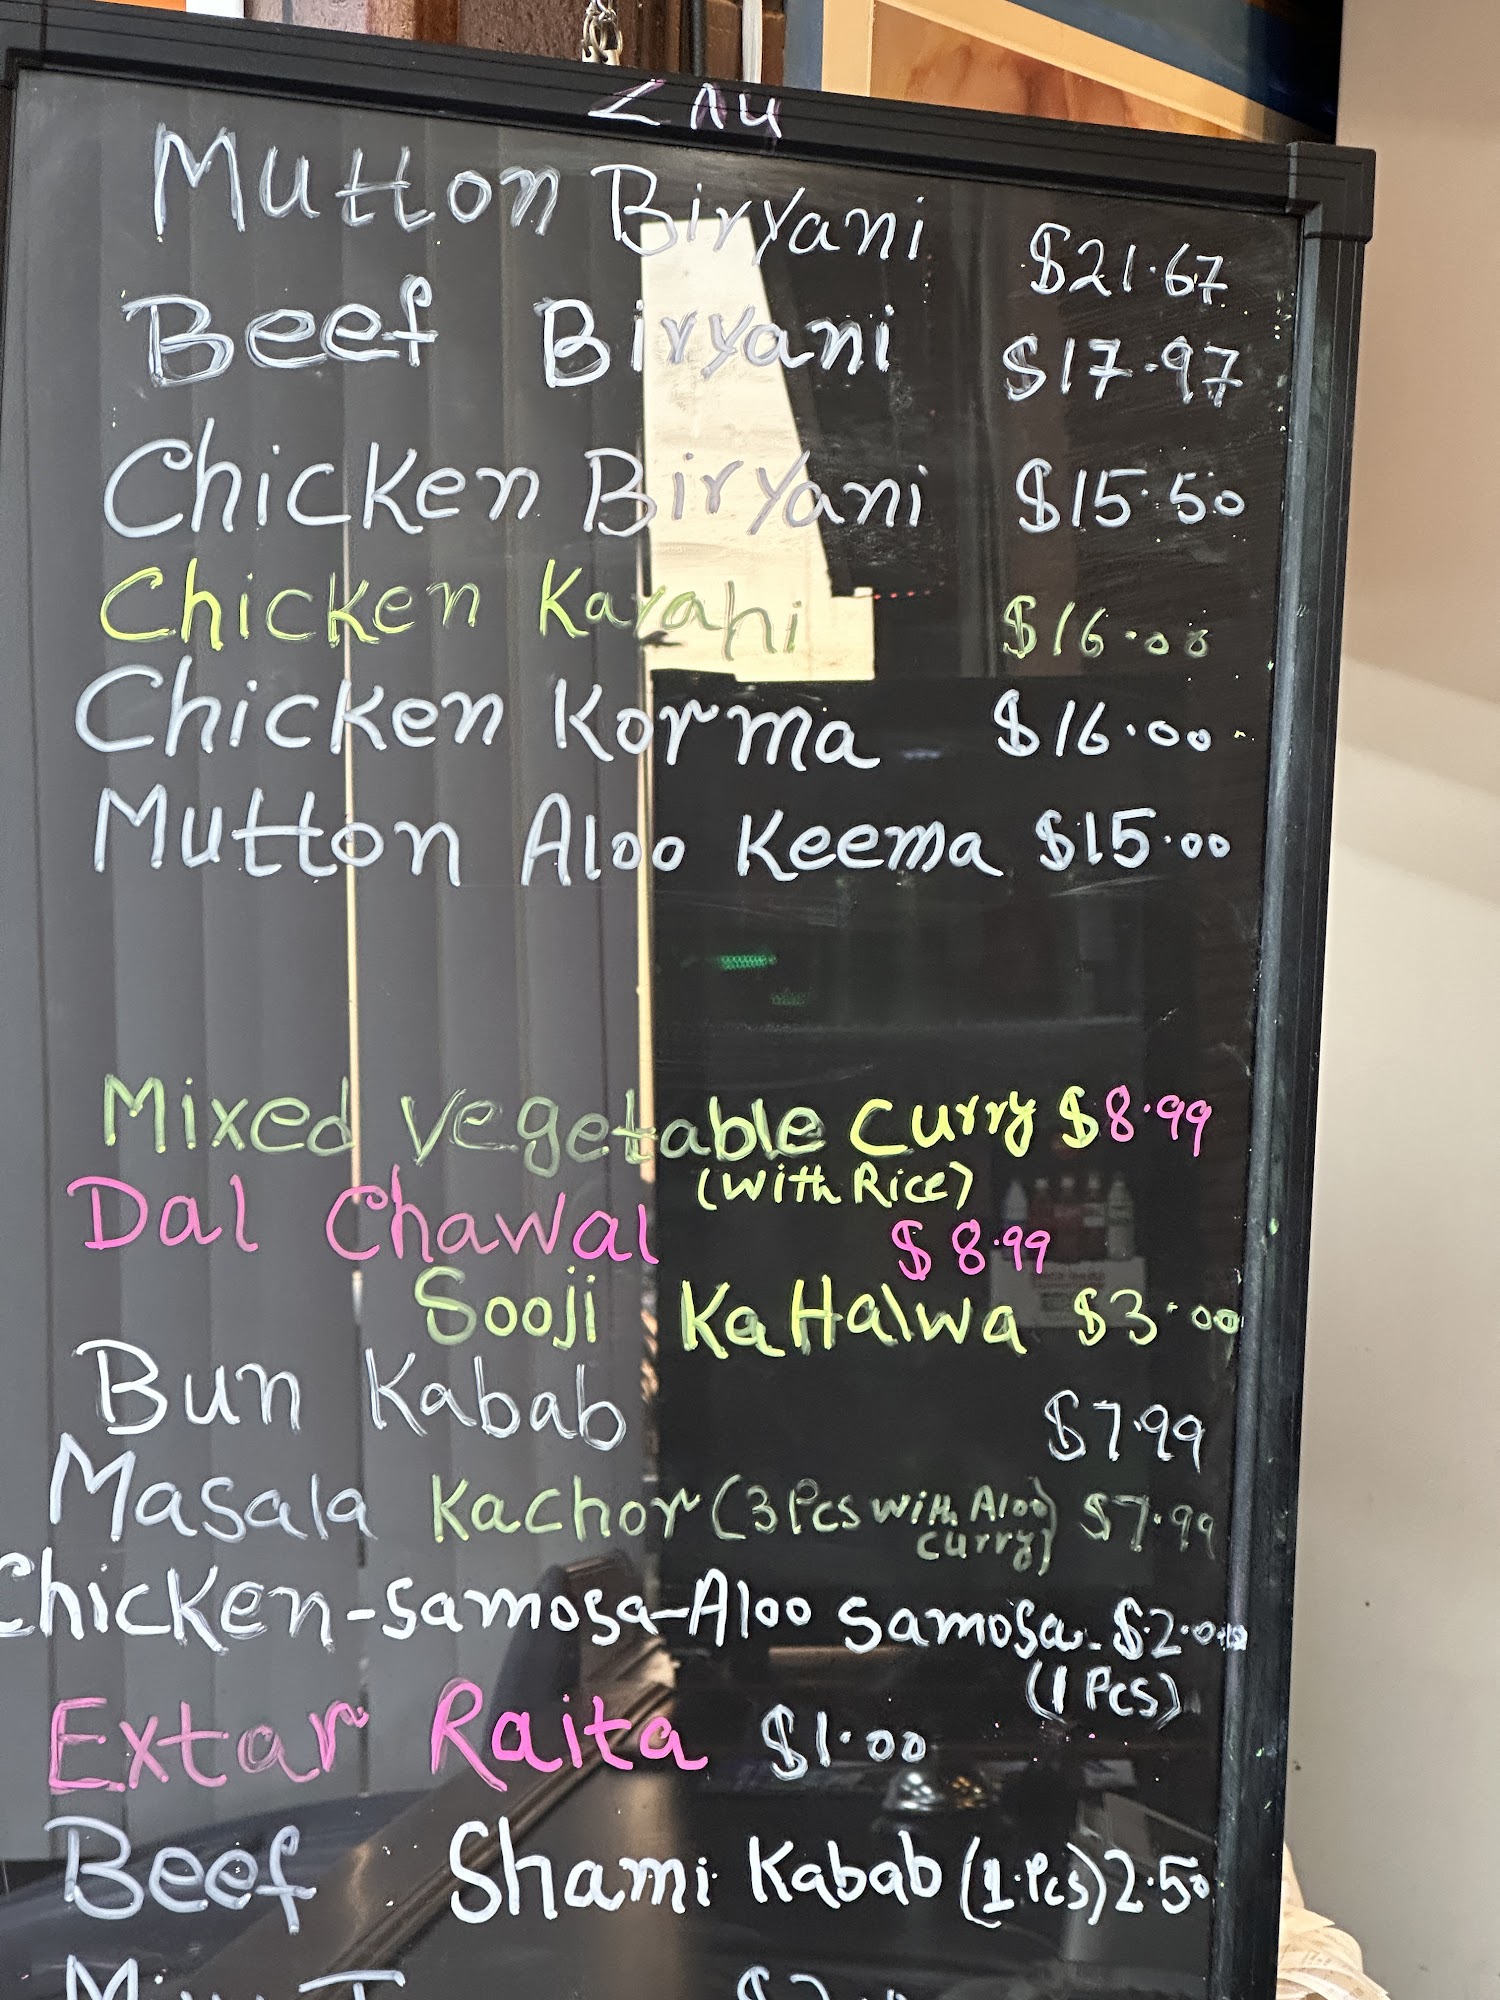 Mutton Biryani $21.67
Beef Biryani $17.97
Chicken Biryani $15.50
Chicken Karahi $16.00
Chicken Korma $16.00
Mutton Aloo Keema $15.00
Mixed Vegetable Curry $8.99
(With Rice)
Dal Chawal $8.99
Sooji Ka Halwa $3.00
Bun Kabab $7.99
Masala Kachor (3 Pcs With Aloo $7.99
Curry)
Chicken-Samosa-Aloo Samosa-$2.00
(1 Pcs)
Extar Raita $1.00
Beef Shami Kabab (1.Pcs) 2.50